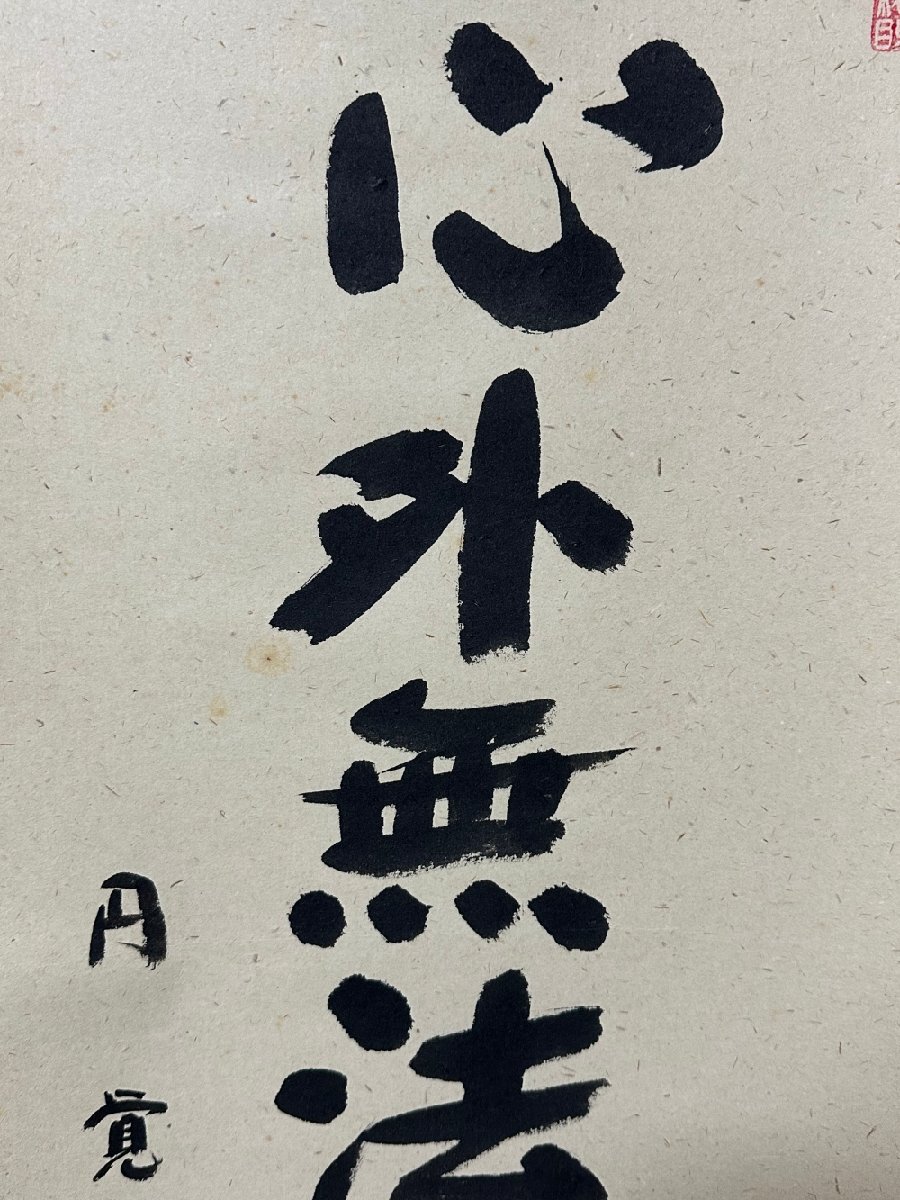 心外無法
円覚